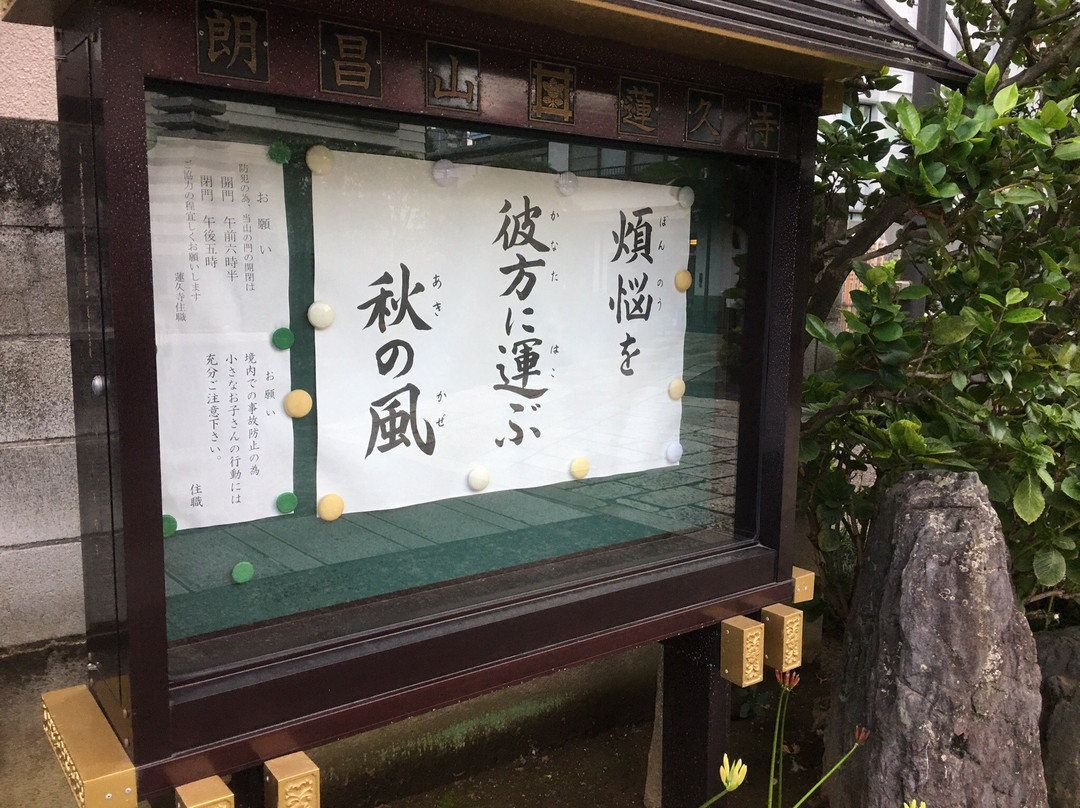 朗昌山 蓮久寺
煩悩を
ぼんのう
彼方に運ぶ
かなた はこ
秋の風
あき かぜ
お願い
防犯の為、当山の門の開閉は
開門 午前六時半
閉門 午後五時
ご協力の程宜しくお願いします
蓮久寺住職
お願い
境内での事故防止の為
小さなお子さんの行動には
充分ご注意下さい。
住職